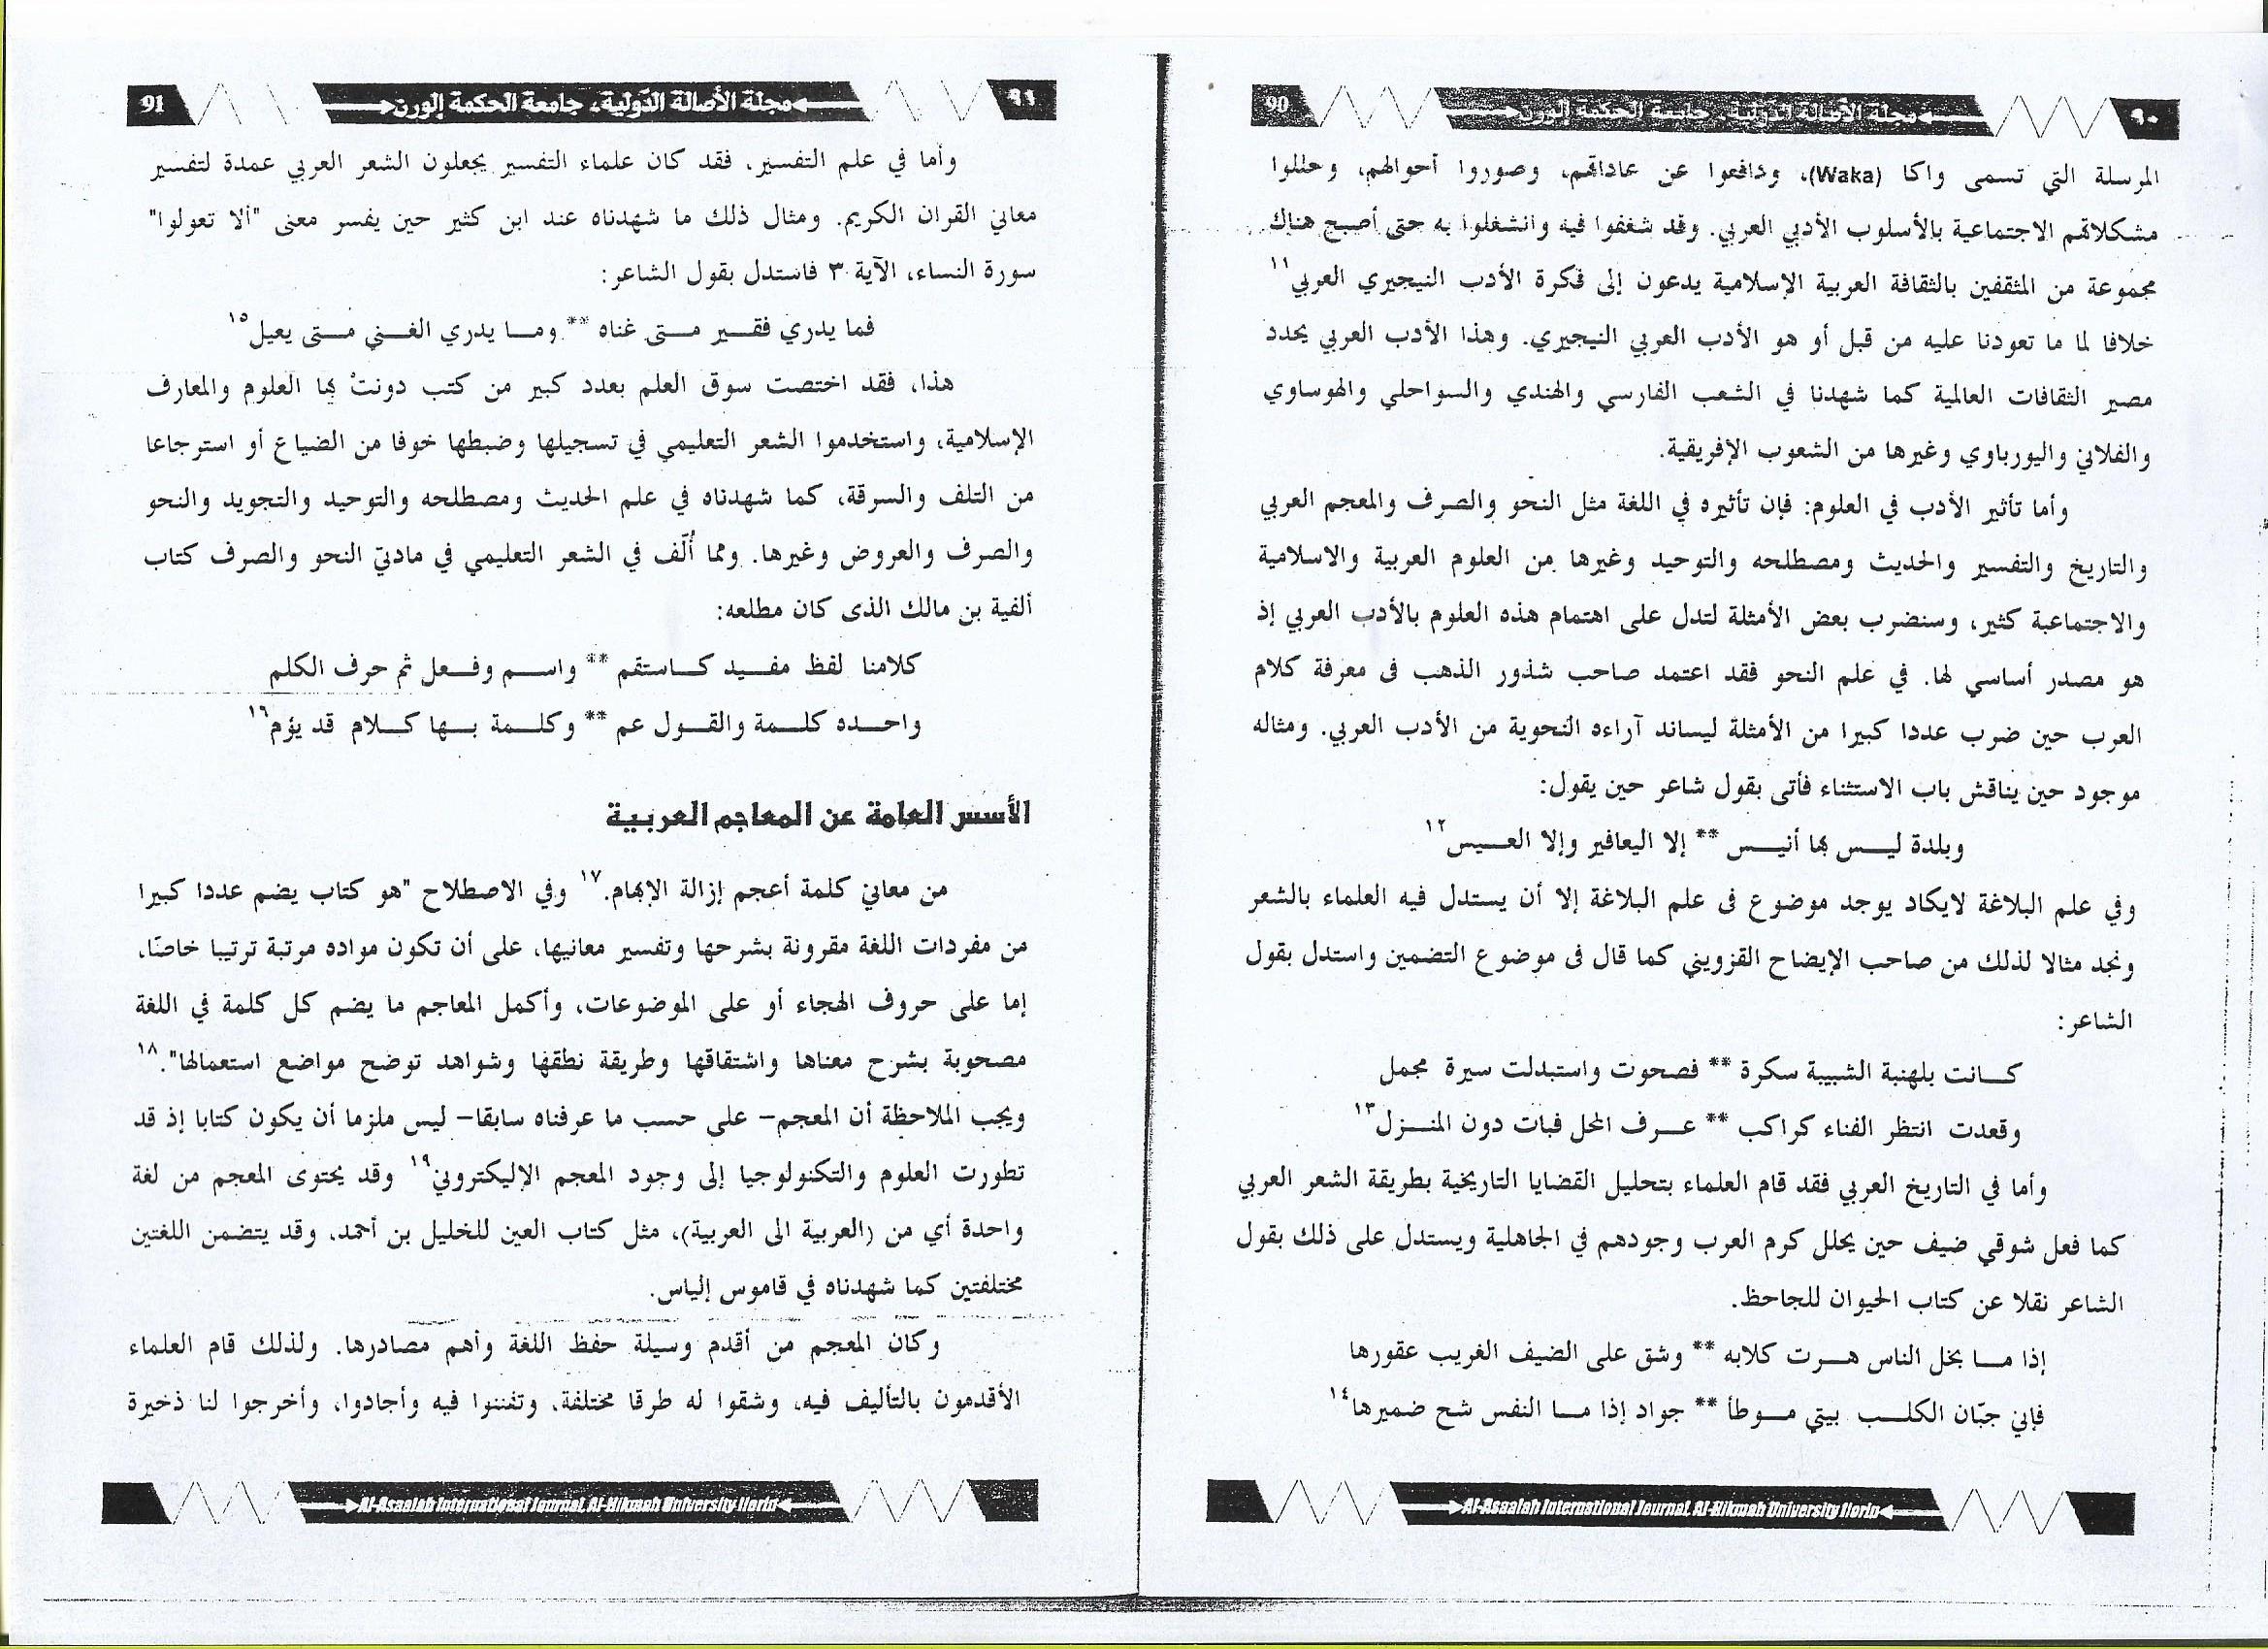 ٩٠
مجلة الأصالة الدولية، جامعة الحكمة إلورن
90
المرسلة التي تسمى واكا (Waka)، ودافعوا عن عاداتهم، وصوروا أحوالهم، وحللوا
مشكلاتهم الاجتماعية بالأسلوب الأدبي العربي. وقد شغفوا فيه وانشغلوا به حتى أصبح هناك
مجموعة من المثقفين بالثقافة العربية الإسلامية يدعون إلى فكرة الأدب النيجيري العربي١١
خلافا لما ما تعودنا عليه من قبل أو هو الأدب العربي النيجيري. وهذا الأدب العربي يحدد
مصير الثقافات العالمية كما شهدنا في الشعب الفارسي والهندي والسواحلي والهوساوي
والفلاني واليورباوي وغيرها من الشعوب الإفريقية.
وأما تأثير الأدب في العلوم: فإن تأثيره في اللغة مثل النحو والصرف والمعجم العربي
والتاريخ والتفسير والحديث ومصطلحه والتوحيد وغيرها من العلوم العربية والاسلامية
والاجتماعية كثير، وسنضرب بعض الأمثلة لتدل على اهتمام هذه العلوم بالأدب العربي إذ
هو مصدر أساسي لها. في علم النحو فقد اعتمد صاحب شذور الذهب فى معرفة كلام
العرب حين ضرب عددا كبيرا من الأمثلة ليساند آراءه النحوية من الأدب العربي. ومثاله
موجود حين يناقش باب الاستثناء فأتى بقول شاعر حين يقول:
وبلدة ليـــس بها أنيـــس ** إلا اليعافير وإلا العـــيس١٢
وفي علم البلاغة لايكاد يوجد موضوع فى علم البلاغة إلا أن يستدل فيه العلماء بالشعر
ونجد مثالا لذلك من صاحب الإيضاح القزويني كما قال فى موضوع التضمين واستدل بقول
الشاعر:
كـــانت بلهنية الشبيبة سكرة ** فصحوت واستبدلت سيرة مجمل
وقعدت انتظر الفناء كراكب ** عـــرف المحل فبات دون المنـــزل١٣
وأما في التاريخ العربي فقد قام العلماء بتحليل القضايا التاريخية بطريقة الشعر العربي
كما فعل شوقي ضيف حين يحلل كرم العرب وجودهم في الجاهلية ويستدل على ذلك بقول
الشاعر نقلا عن كتاب الحيوان للجاحظ.
إذا مـــا بخل الناس هـــرت كلابه ** وشق على الضيف الغريب عقورها
فإني جبّان الكلـــب بيتي مـــوطأ ** جواد إذا مـــا النفس شح ضميرها١٤
Al-Asaalah International Journal, Al-Hikmah University Ilorin
٩١
مجلة الأصالة الدّولية، جامعة الحكمة إلورن
91
وأما في علم التفسير، فقد كان علماء التفسير يجعلون الشعر العربي عمدة لتفسير
معاني القران الكريم. ومثال ذلك ما شهدناه عند ابن كثير حين يفسر معنى "ألا تعولوا"
سورة النساء، الآية ٣ فاستدل بقول الشاعر:
فما يدري فقـــير مـــتى غناه ** ومـــا يدري الغـــني مـــتى يعيل١٥
هذا، فقد اختصت سوق العلم بعدد كبير من كتب دونتْ بها العلوم والمعارف
الإسلامية، واستخدموا الشعر التعليمي في تسجيلها وضبطها خوفا من الضياع أو استرجاعا
من التلف والسرقة، كما شهدناه في علم الحديث ومصطلحه والتوحيد والتجويد والنحو
والصرف والعروض وغيرها. ومما أُلّف في الشعر التعليمي في مادتيْ النحو والصرف كتاب
ألفية بن مالك الذى كان مطلعه:
كلامنا لفظ مفـــيد كـــاستقم ** واســـم وفـــعل ثم حرف الكلم
واحـــده كلـــمة والقـــول عم ** وكلـــمة بـــها كـــلام قد يؤم١٦
الأسس العامة عن المعاجم العربية
من معاني كلمة أعجم إزالة الإبهام.١٧ وفي الاصطلاح "هو كتاب يضم عددا كبيرا
من مفردات اللغة مقرونة بشرحها وتفسير معانيها، على أن تكون مواده مرتبة ترتيبا خاصّا،
إما على حروف الهجاء أو على الموضوعات، وأكمل المعاجم ما يضم كل كلمة في اللغة
مصحوبة بشرح معناها واشتقاقها وطريقة نطقها وشواهد توضح مواضع استعمالها".١٨
ويجب الملاحظة أن المعجم– على حسب ما عرفناه سابقا– ليس ملزما أن يكون كتابا إذ قد
تطورت العلوم والتكنولوجيا إلى وجود المعجم الإليكتروني١٩ وقد يحتوى المعجم من لغة
واحدة أي من (العربية الى العربية)، مثل كتاب العين للخليل بن أحمد، وقد يتضمن اللغتين
مختلفتين كما شهدناه في قاموس إلياس.
وكان المعجم من أقدم وسيلة حفظ اللغة وأهم مصادرها. ولذلك قام العلماء
الأقدمون بالتأليف فيه، وشقوا له طرقا مختلفة، وتفننوا فيه وأجادوا، وأخرجوا لنا ذخيرة
Al-Asaalah International Journal, Al-Hikmah University Ilorin